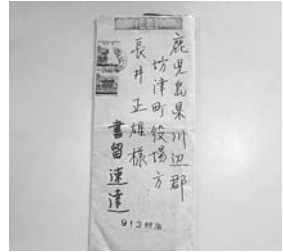 鹿児島県川辺郡
坊津町役場方
長井正雄様
書留速達